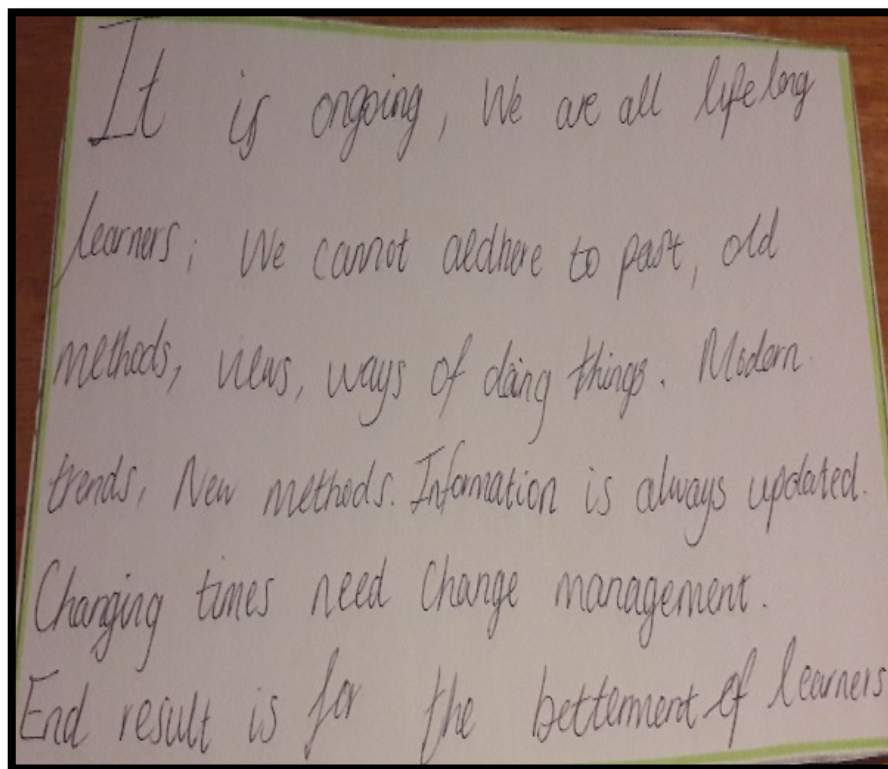 It is ongoing, We are all lifelong
learners; We cannot aedhere to past, old
methods, views, ways of doing things. Modern
trends, New methods. Information is always updated.
Changing times need change management.
End result is for the betterment of learners